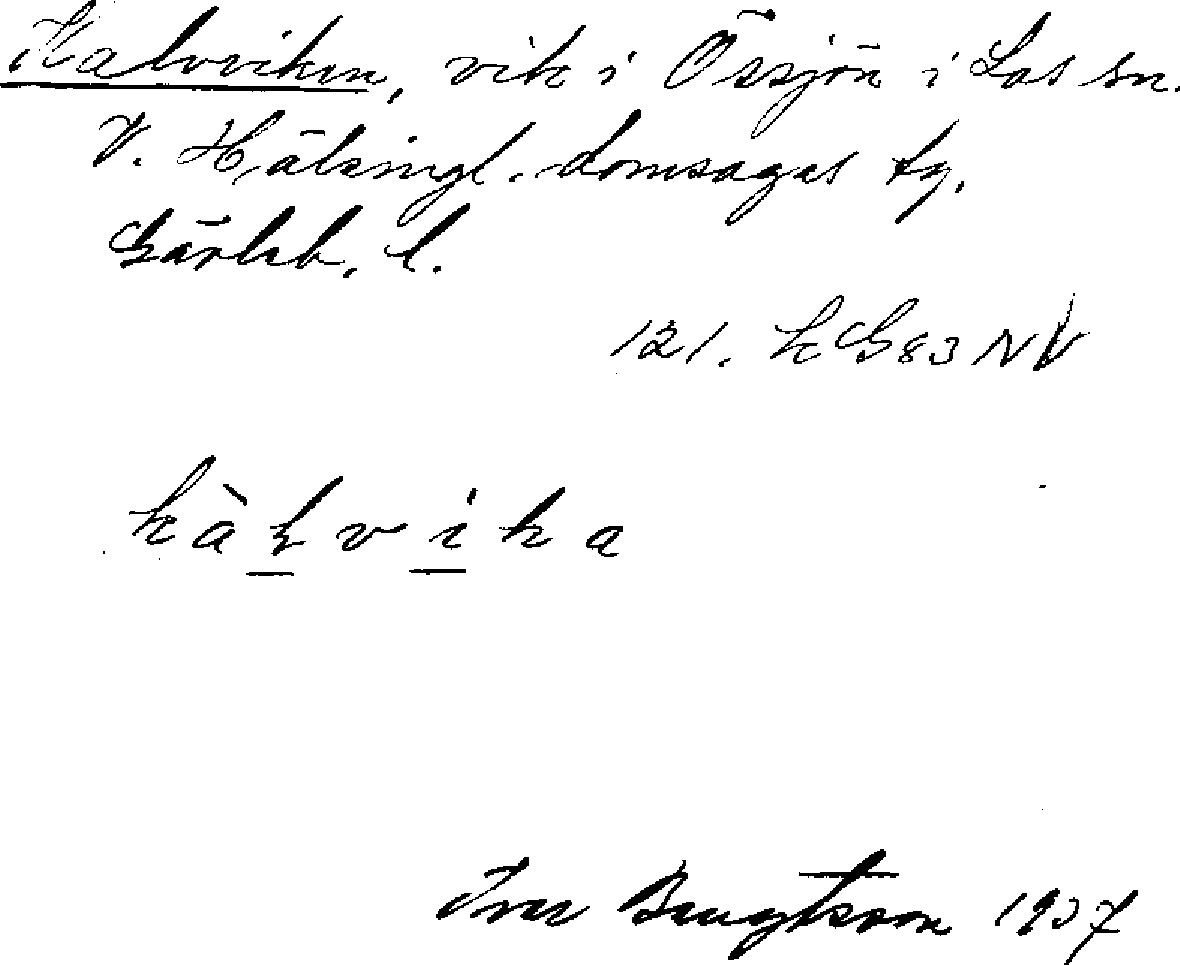 Kalvviken, vik i Össjön i Los sn.
V. Hälsingl. domsagas tg.
Gävleb. l.
121. k G 83 NV
kàḷvika
Iver Bengtsson 1937